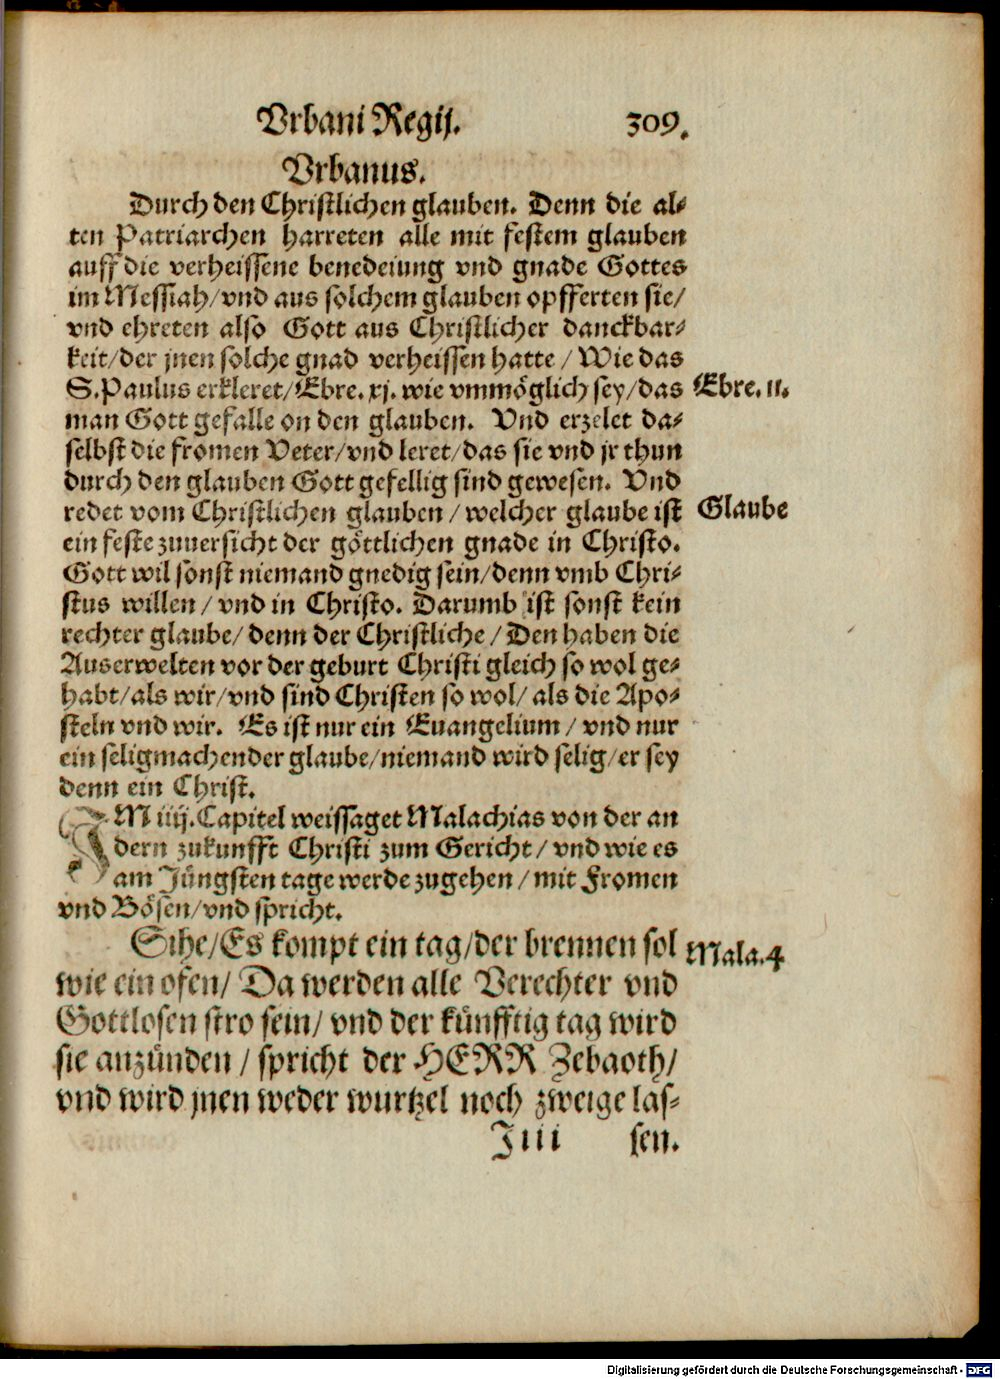 Vrbani Regij. 309.
Vrbanus.
Durch den Christlichen glauben. Denn die al-
ten Patriarchen harreten alle mit festem glauben
auff die verheissene benedeiung vnd gnade Gottes
im Messiah/vnd aus solchem glauben opfferten sie/
vnd ehreten also Gott aus Christlicher danckbar-
keit/der jnen solche gnad verheissen hatte/Wie das
S.Paulus erkleret/Ebre.xj. wie vnmöglich sey/das
Ebre. 11.
man Gott gefalle on den glauben. Vnd erzelet da-
selbst die fromen Veter/vnd leret/das sie vnd jr thun
durch den glauben Gott gefellig sind gewesen. Vnd
redet vom Christlichen glauben/welcher glaube ist
Glaube
ein feste zuuersicht der göttlichen gnade in Christo.
Gott wil sonst niemand gnedig sein/denn vmb Chri-
stus willen/vnd in Christo. Darumb ist sonst kein
rechter glaube/denn der Christliche/Den haben die
Auserwelten vor der geburt Christi gleich so wol ge-
habt/als wir/vnd sind Christen so wol/als die Apo-
steln vnd wir. Es ist nur ein Euangelium/vnd nur
ein seligmachender glaube/niemand wird selig/er sey
denn ein Christ.
IM iiij.Capitel weissaget Malachias von der an
dern zukunfft Christi zum Gericht/vnd wie es
am Jüngsten tage werde zugehen/mit Fromen
vnd Bösen/vnd spricht.
Sihe/Es kompt ein tag/der brennen sol
Mala.4
wie ein ofen/Da werden alle Verechter vnd
Gottlosen stro sein/vnd der künfftig tag wird
sie anzünden/spricht der HERR Zebaoth/
vnd wird jnen weder wurtzel noch zweige las-
J iii sen.
Digitalisierung gefördert durch die Deutsche Forschungsgemeinschaft - DFG